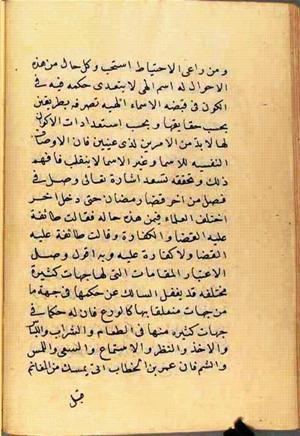 ومن راعى الاحتياط استحب وكل حال من هذه
الاحوال له اسم الهي لا يتعدى حكمه فيه في
الكون في قبضه الاسماء الهيه تصرفه بطريقين
بحسب حقايقها وبحسب استعدادات الاكوان
لها لا بد من الامرين لذى عينين فان الاوصاف
النفسيه للاسما وغير الاسما لا ينقلب فافهم
ذلك وتحققه تسعد اشارة تعالى وصل في
فصل من اخر قضا رمضان حتى دخل اخر
اختلف العلماء فيمن هذه حاله فقالت طائفة
عليه القضا والكفارة وقالت طائفة عليه
القضا ولا كفارة عليه وبه اقول وصل
الاعتبار المقامات التى لها جهات كثيرة
مختلفه قد يغفل السالك عن حكمها في جهة ما
من جهات متعلقا بها كالورع فان له حكما في
جهات كثيره منها في الطعام والشراب واللباس
والاخذ والنظر والاستماع والسعى واللمس
والشم فان عمر بن الخطاب اتى بمسك من المغانم
قبل